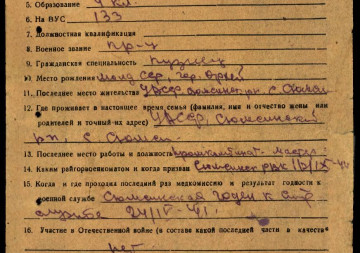 5. Образование 4 кл.
6. На ВУС 133
7. Должностная квалификация
8. Военное звание пр-ц
9. Гражданская специальность Кузнец
10. Место рождения
11. Последнее место жительства УАССР
12. Где проживает в настоящее время семья (фамилия, имя и отчество жены или
родителей и точный адрес) УАССР, Сюмсинский
рн, с. Сюмси
13. Последнее место работы и должность
14. Каким райгорвоенкоматом и когда призван Сюмсинск рвк
15. Когда и где проходил последний раз медкомиссию и результат годности к
военной службе Сюмсинская годен к
службе 24/IV-41г.
16. Участие в Отечественной войне (в составе какой последней части и в качестве
нет